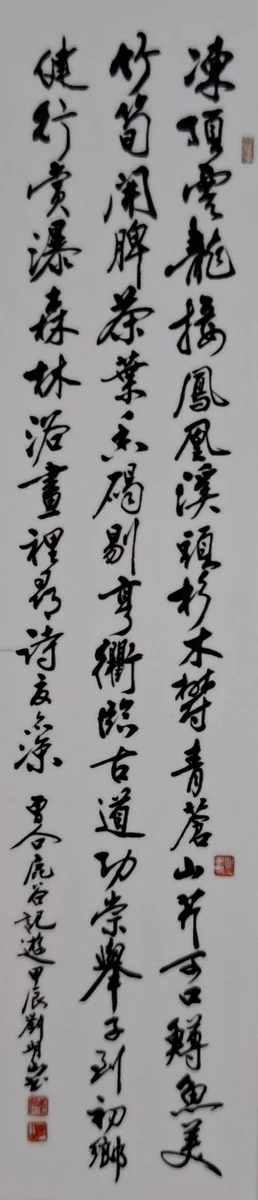 凍頂雲龍接鳳凰溪頭杉木鬱青蒼山芹可口鱒魚美
竹筍開脾茶葉香碣剔亨衢臨古道功崇舉子到初鄉
健行賞瀑森林浴畫裡尋詩夏亦涼
鹿谷記遊甲辰劉